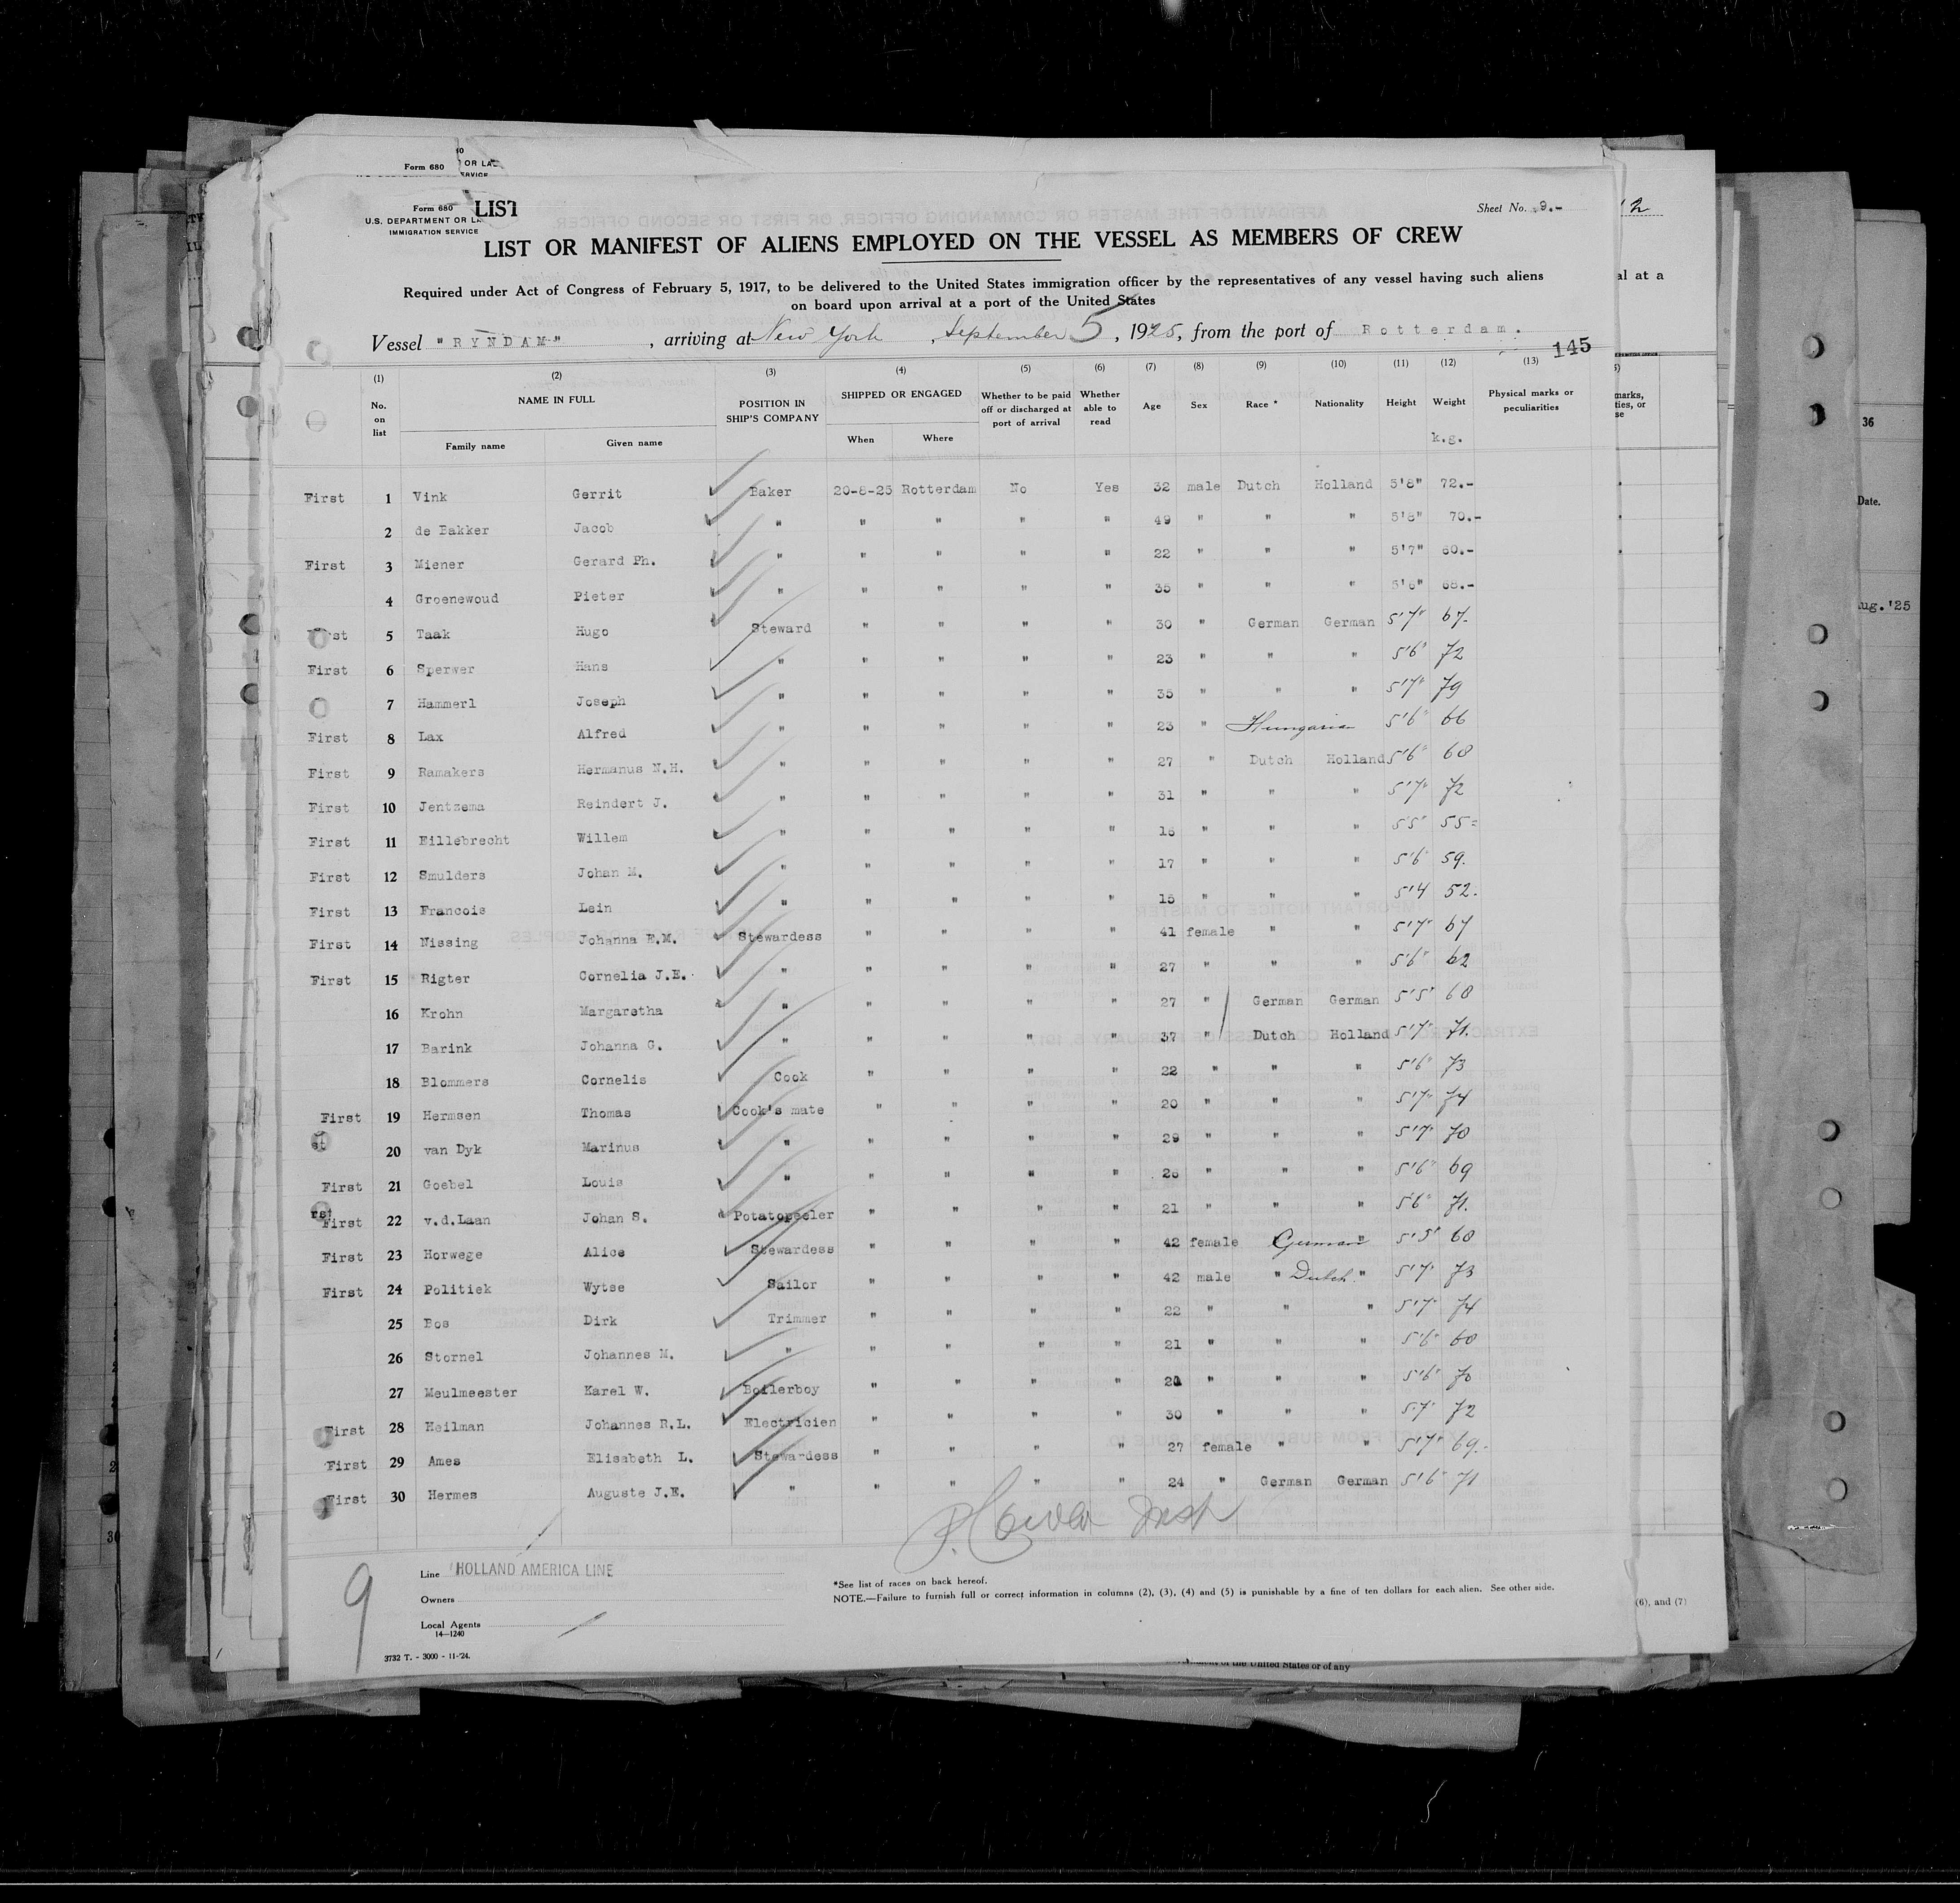 Form 680
OR LA
Form 680
LIST
U.S. DEPARTMENT OR LA
IMMIGRATION SERVICE
Sheet No. 9.-
12
LIST OR MANIFEST OF ALIENS EMPLOYED ON THE VESSEL AS MEMBERS OF CREW
Required under Act of Congress of February 5, 1917, to be delivered to the United States immigration officer by the representatives of any vessel having such aliens
al at a
on board upon arrival at a port of the United States
Vessel "RYNDAM", arriving at New York, September 5, 1925, from the port of Rotterdam.
145
(1) (2) (3) (4) (5) (6) (7) (8) (9) (10) (11) (12) (13)
No. on list NAME IN FULL POSITION IN SHIP'S COMPANY SHIPPED OR ENGAGED Whether to be paid off or discharged at port of arrival Whether able to read Age Sex Race * Nationality Height Weight Physical marks or peculiarities
Family name Given name When Where k.g.
First 1 Vink Gerrit Baker 20-8-25 Rotterdam No Yes 32 male Dutch Holland 5'8" 72.-
2 de Bakker Jacob " " " " " 49 " " " 5'8" 70.-
First 3 Miener Gerard Ph. " " " " " 22 " " " 5'7" 60.-
4 Groenewoud Pieter " " " " " 35 " " " 5'6" 68.-
st 5 Taak Hugo Steward " " " " 30 " German German 5'7" 67.
First 6 Sperwer Hans " " " " " 23 " " " 5'6" 72
7 Hammerl Joseph " " " " " 35 " " " 5'7" 79
First 8 Lax Alfred " " " " " 23 " Hungarian 5'6" 66
First 9 Ramakers Hermanus N.H. " " " " " 27 " Dutch Holland 5'6" 68
First 10 Jentzema Reindert J. " " " " " 31 " " " 5'7" 72
First 11 Eillebrecht Willem " " " " " 16 " " " 5'5" 55
First 12 Smulders Johan M. " " " " " 17 " " " 5'6" 59.
First 13 Francois Lein " " " " " 15 " " " 5'4 52.
First 14 Nissing Johanna E.M. Stewardess " " " " 41 female " " 5'7" 67
First 15 Rigter Cornelia J.E. " " " " " 27 " " " 5'6" 62
16 Krohn Margaretha " " " " " 27 " German German 5'5" 60
17 Barink Johanna G. " " " " " 37 " Dutch Holland 5'7" 71.
18 Blommers Cornelis Cook " " " " 22 " " " 5'6" 73
First 19 Hermsen Thomas Cook's mate " " " " 20 " " " 5'7" 74
st 20 van Dyk Marinus " " " " " 29 " " " 5'7" 70
First 21 Goebel Louis " " " " " 26 " " " 5'6" 69
First 22 v.d.Laan Johan S. Potatopeeler " " " " 21 " " " 5'6" 71.
First 23 Horwege Alice Stewardess " " " " 42 female German " 5'5" 60
First 24 Politiek Wytse Sailor " " " " 42 male " Dutch " 5'7" 73
25 Bos Dirk Trimmer " " " " 22 " " " 5'7" 74
26 Stornel Johannes M. " " " " " 21 " " " 5'6" 60
27 Meulmeester Karel W. Boilerboy " " " " " " " 5'6" 70
First 28 Heilman Johannes R.L. Electricien " " " " 30 " " " 5'7" 72
First 29 Ames Elisabeth L. Stewardess " " " " 27 female " " 5'7" 69.-
First 30 Hermes Auguste J.E. " " " " " 24 " German German 5'6" 71
9
Line HOLLAND AMERICA LINE
Owners
Local Agents
14—1240
3732 T. - 3000 - 11-'24.
*See list of races on back hereof.
NOTE.—Failure to furnish full or correct information in columns (2), (3), (4) and (5) is punishable by a fine of ten dollars for each alien. See other side.
(6), and (7)
of the United States or of any
marks,
ties, or
se
36
Date.
ug.'25